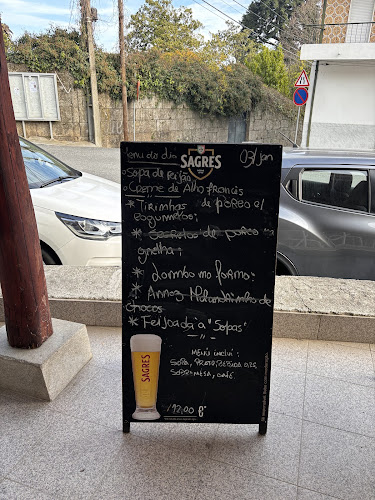 SAGRES
Menu do dia 03/Jan
Sopa de Feijão
Creme de Alho francês
* Tirinhas de porco c/
cogumelos;
* Secretos de porco na
grelha;
* Lombo no forno;
* Arroz Malandrinho de
Chocos
* Feijoada à "Sopas"
MENÚ inclui:
SOPA, PRATO, BEBIDA 0,2L
SOBREMESA, CAFÉ.
SAGRES
12,00 €